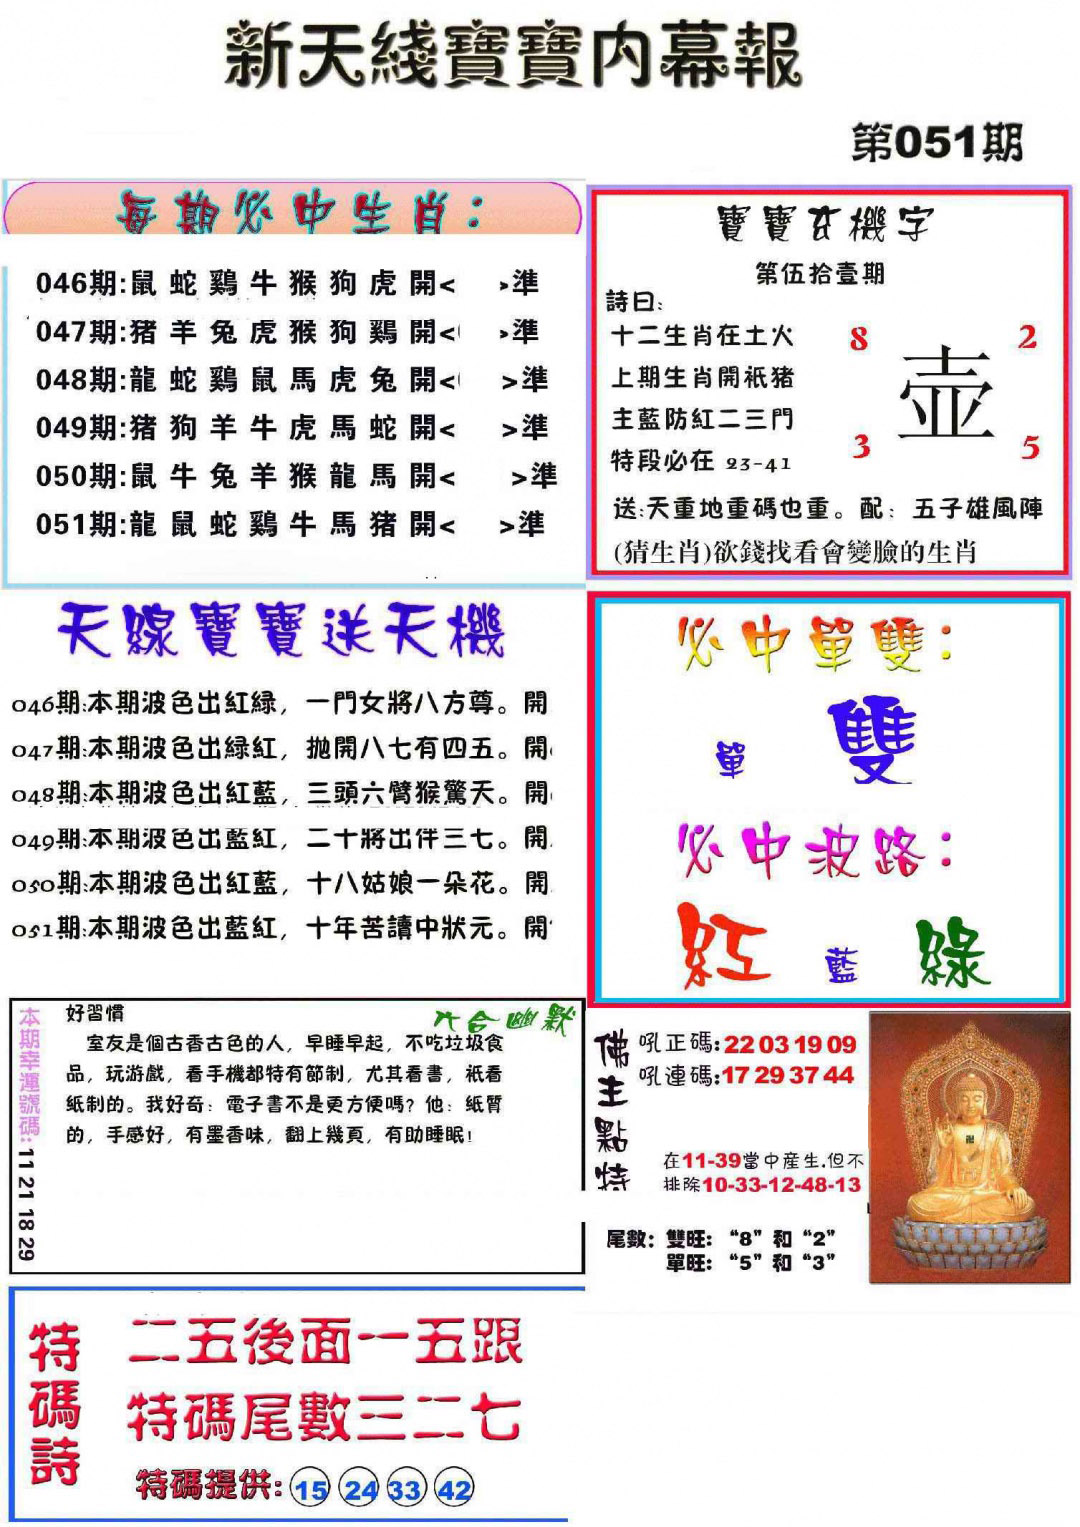 新天綫寶寶內幕報
第051期
每期必中生肖：
046期:鼠 蛇 鷄 牛 猴 狗 虎 開< >準
047期:猪 羊 兔 虎 猴 狗 鷄 開< >準
048期:龍 蛇 鷄 鼠 馬 虎 兔 開< >準
049期:猪 狗 羊 牛 虎 馬 蛇 開< >準
050期:鼠 牛 兔 羊 猴 龍 馬 開< >準
051期:龍 鼠 蛇 鷄 牛 馬 猪 開< >準
寶寶玄機字
第伍拾壹期
詩曰:
十二生肖在土火
上期生肖開祇猪
主藍防紅二三門
特段必在 23-41
8 2
壶
3 5
送:天重地重碼也重。配：五子雄風陣
(猜生肖)欲錢找看會變臉的生肖
天線寶寶送天機
046期:本期波色出紅緑，一門女將八方尊。開
047期:本期波色出緑紅，抛開八七有四五。開
048期:本期波色出紅藍，三頭六臂猴驚天。開
049期:本期波色出藍紅，二十將出伴三七。開
050期:本期波色出紅藍，十八姑娘一朵花。開
051期:本期波色出藍紅，十年苦讀中狀元。開
必中單雙：
單 雙
必中波路：
紅 藍 綠
本期幸運號碼:11 21 18 29
六合幽默
好習慣
室友是個古香古色的人，早睡早起，不吃垃圾食
品，玩游戲，看手機都特有節制，尤其看書，祇看
紙制的。我好奇：電子書不是更方便嗎？他：紙質
的，手感好，有墨香味，翻上幾頁，有助睡眠！
佛主點特
吼正碼:22 03 19 09
吼連碼:17 29 37 44
在11-39當中産生.但不
排除10-33-12-48-13
尾數：雙旺：“8”和“2”
單旺：“5”和“3”
特碼詩
二五後面一五跟
特碼尾數三二七
特碼提供: 15 24 33 42